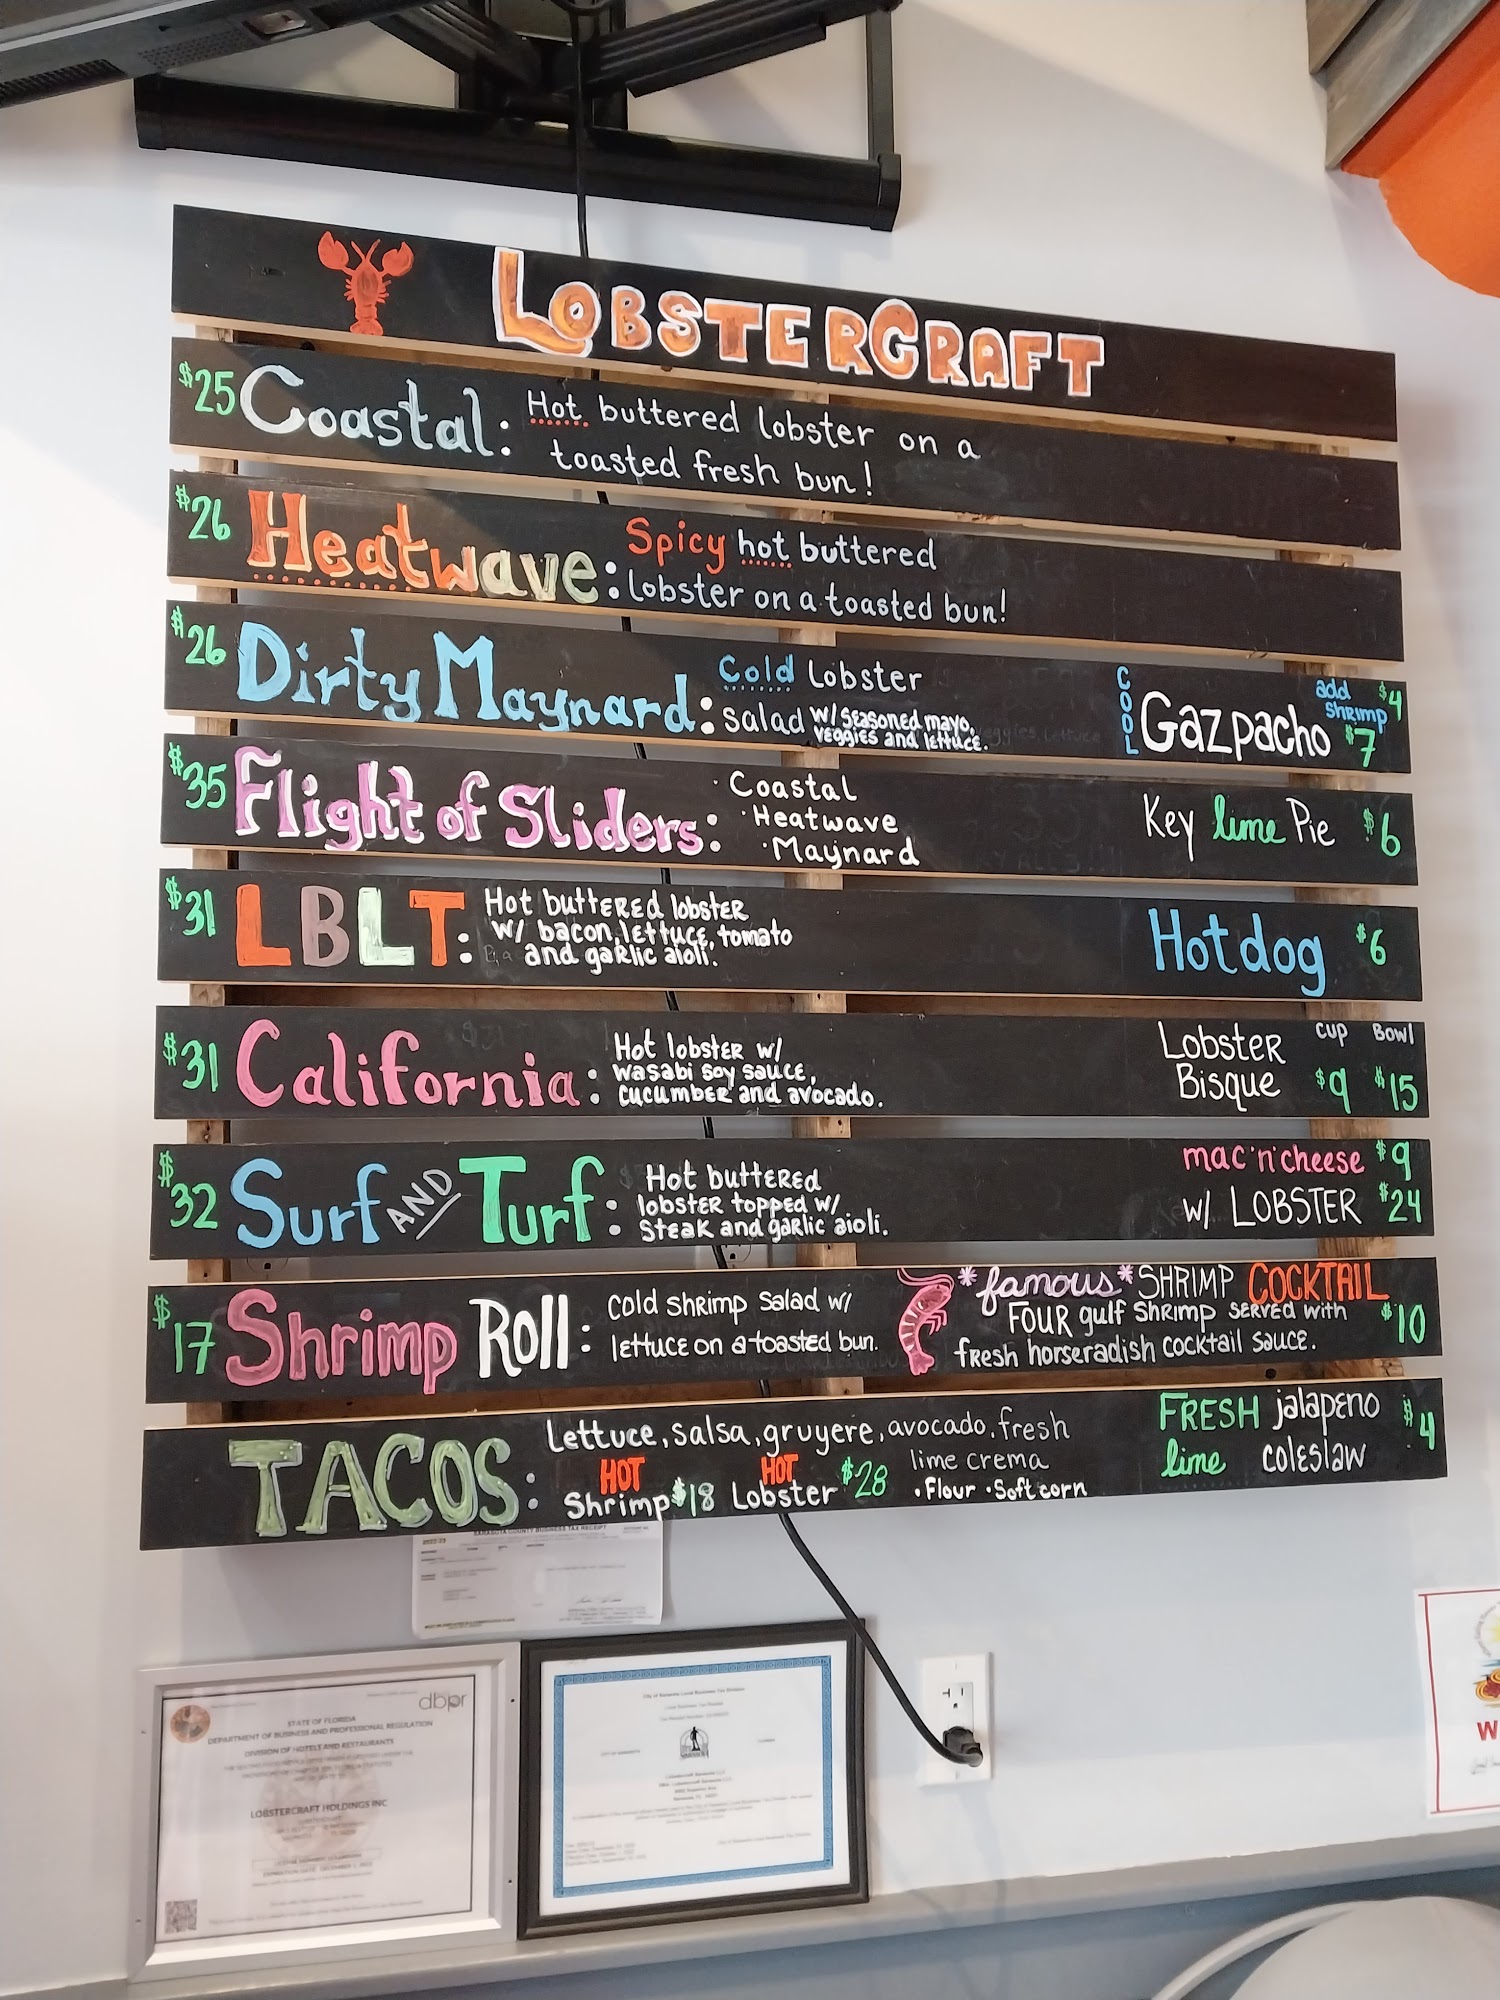 LOBSTERCRAFT
$25 Coastal: Hot buttered lobster on a
toasted fresh bun!
$26 Heatwave: Spicy hot buttered
lobster on a toasted bun!
$26 Dirty Maynard: Cold Lobster
salad w/ seasoned mayo,
veggies and lettuce.
COOL Gazpacho $7
add shrimp $4
$35 Flight of Sliders: · Coastal
· Heatwave
· Maynard
Key lime Pie $6
$31 LBLT: Hot buttered lobster
w/ bacon, lettuce, tomato
and garlic aioli.
Hot dog $6
$31 California: Hot lobster w/
wasabi soy sauce,
cucumber and avocado.
Cup Bowl
Lobster
Bisque $9 $15
$32 Surf AND Turf: Hot buttered
lobster topped w/
steak and garlic aioli.
mac 'n' cheese $9
w/ LOBSTER $24
$17 Shrimp Roll: Cold shrimp salad w/
lettuce on a toasted bun.
*famous* SHRIMP COCKTAIL
FOUR gulf shrimp served with $10
fresh horseradish cocktail sauce.
TACOS: Lettuce, salsa, gruyere, avocado, fresh
lime crema
HOT Shrimp $18 HOT Lobster $28
· Flour · Soft corn
FRESH jalapeno $4
lime coleslaw
SARASOTA COUNTY BUSINESS TAX RECEIPT
dbpr
STATE OF FLORIDA
DEPARTMENT OF BUSINESS AND PROFESSIONAL REGULATION
DIVISION OF HOTELS AND RESTAURANTS
LOBSTERCRAFT HOLDINGS INC
City of Sarasota Local Business Tax Division
W